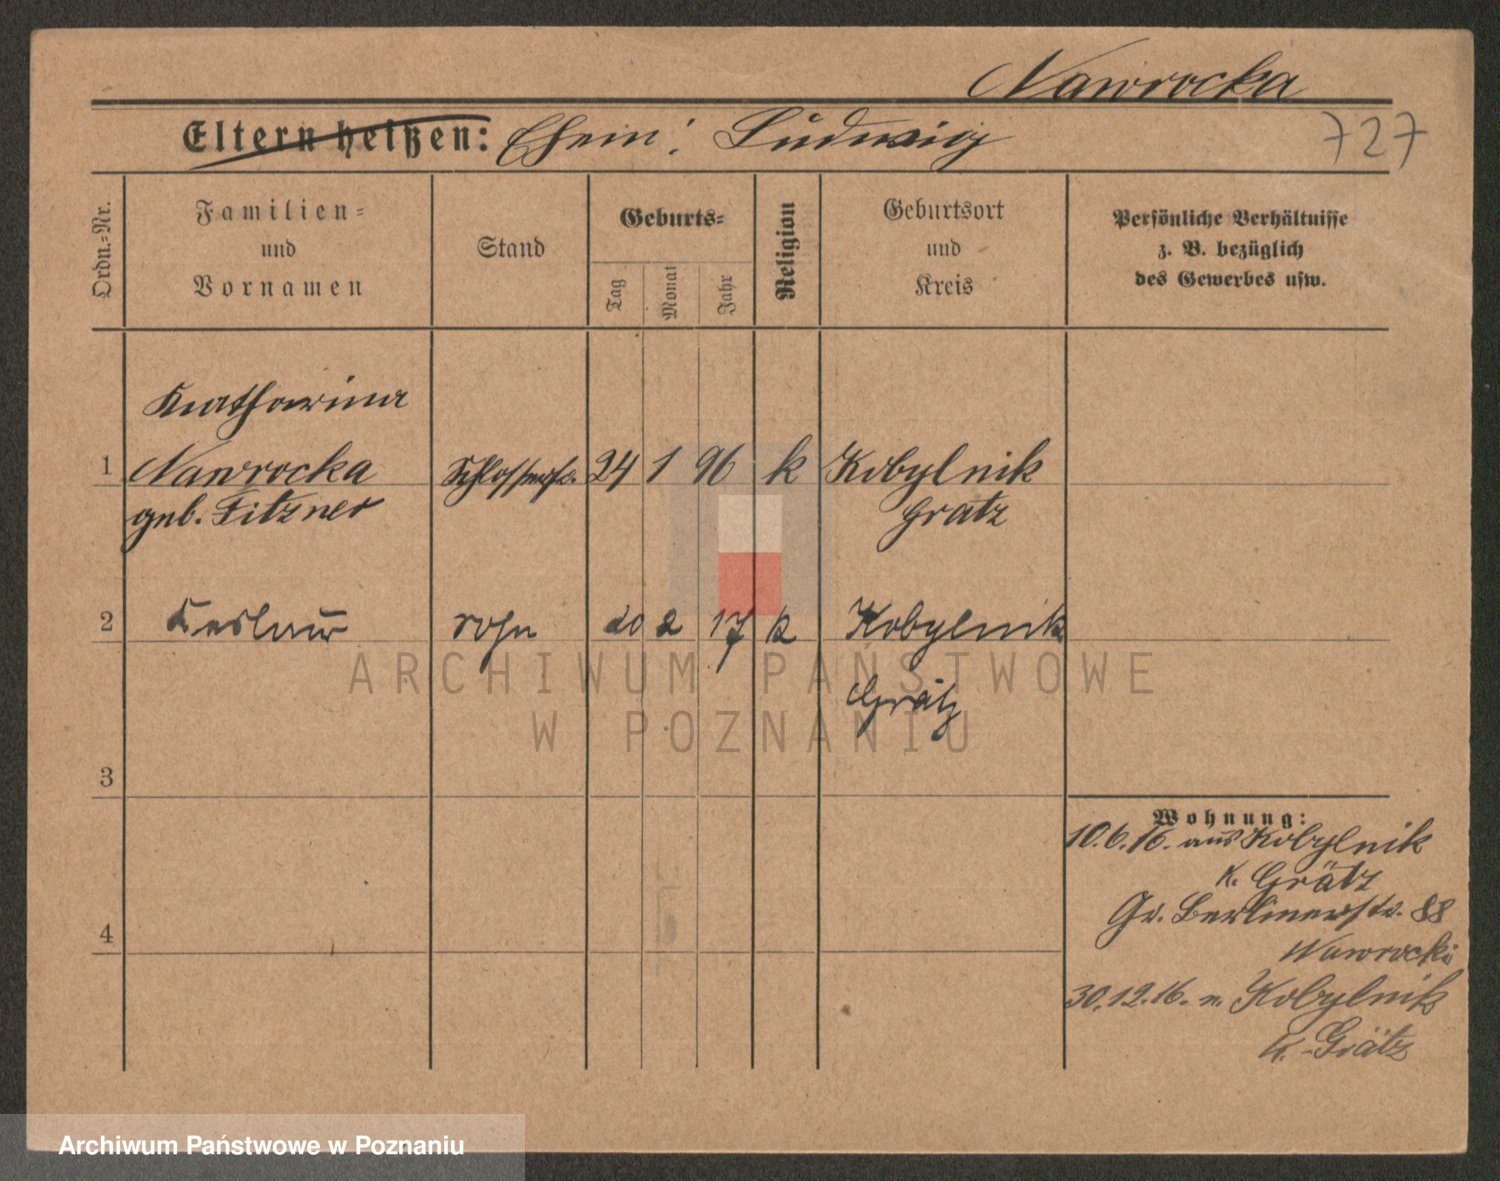 Nawrocka
Eltern heißen: Ehem: Ludwig
727
Ordn.-Nr.
Familien-
und
Vornamen
Stand
Geburts-
Tag
Monat
Jahr
Religion
Geburtsort
und
Kreis
Persönliche Verhältnisse
z. B. bezüglich
des Gewerbes usw.
Katharina
1 Nawrocka 24 1 96 k Kobylnik
geb. Fitzner Gratz
2 Sohn 20 2 17 k Kobylnik
Grätz
3
4
Wohnung:
10.6.16. aus Kobylnik
K. Grätz
Gr. Berlinerstr. 88
Nawrocki
30.12.16. n. Kobylnik
K. Grätz
ARCHIWUM PAŃSTWOWE
W POZNANIU
Archiwum Państwowe w Poznaniu